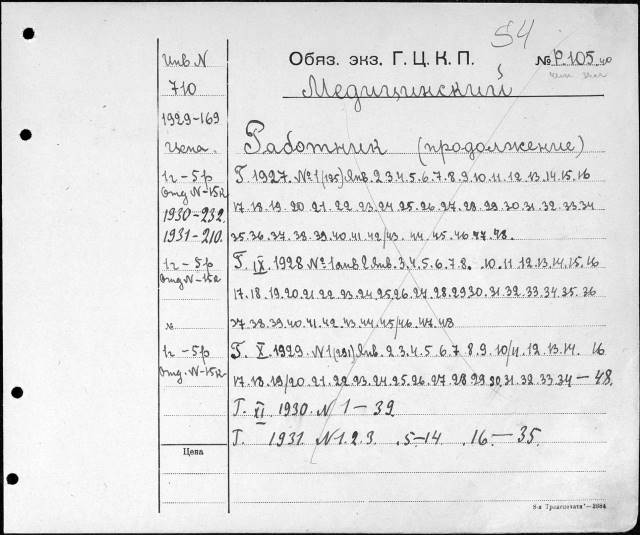 54
Инв. N Обяз. экз. Г. Ц. К. П. № Р.105
710 Медицинский
1929-169
Цена. Работник (продолжение)
1г-5р Г. 1927. №1(135) янв. 2.3.4.5.6.7.8.9.10.11.12.13.14.15.16
Отд N-15к
1930-232. 17.18.19.20.21.22.23.24.25.26.27.28.29.30.31.32.33.34
1931-210. 35.36.37.38.39.40.41.42/43.44.45.46.47.48.
1г-5р Г. IX 1928 №1 янв 2 янв. 3.4.5.6.7.8. 10.11.12.13.14.15.16
Отд N-15к
17.18.19.20.21.22.23.24.25.26.27.28.29.30.31.32.33.34.35.36
№ 37.38.39.40.41.42.43.44.45/46.47.48
1г-5р Г. X. 1929. N1(291) янв. 2.3.4.5.6.7.8.9.10/11.12.13.14. 16
Отд. N-15к
17.18.19/20.21.22.23.24.25.26.27.28.29.30.31.32.33.34-48.
Г. XI 1930. N 1-39
Г. 1931. N1.2.3. .5-14 .16-35.
Цена
8-я Транспечати"—2884